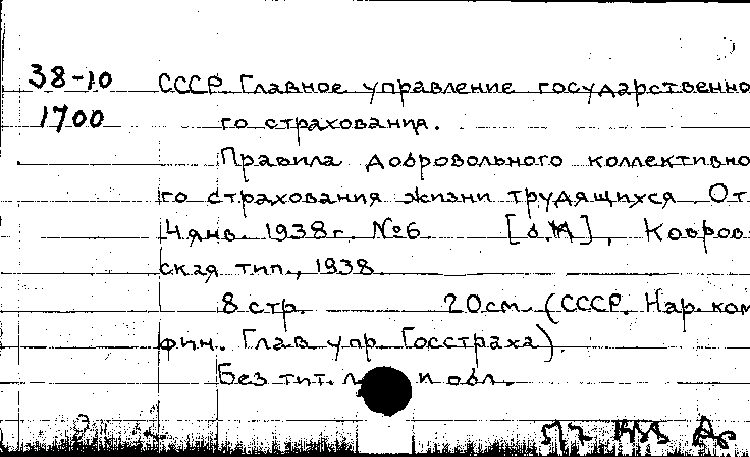 38-10 СССР. Главное управление государственно
1700 го страхования.
Правила добровольного коллективно
го страхования жизни трудящихся. От
4 янв. 1938 г. №6 [б.м], Ковров-
ская тип., 1938.
8 стр. 20см. (СССР. Нар. ком
фин. Глав. упр. Госстраха).
Без тит. л. и обл.